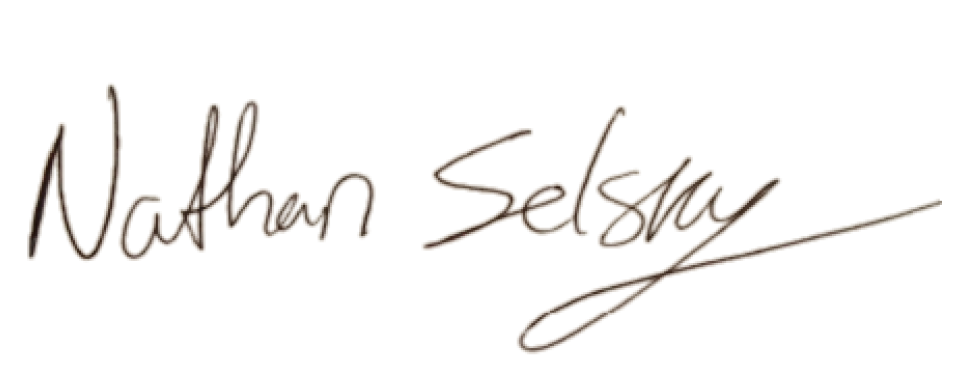 Nathan Selsky